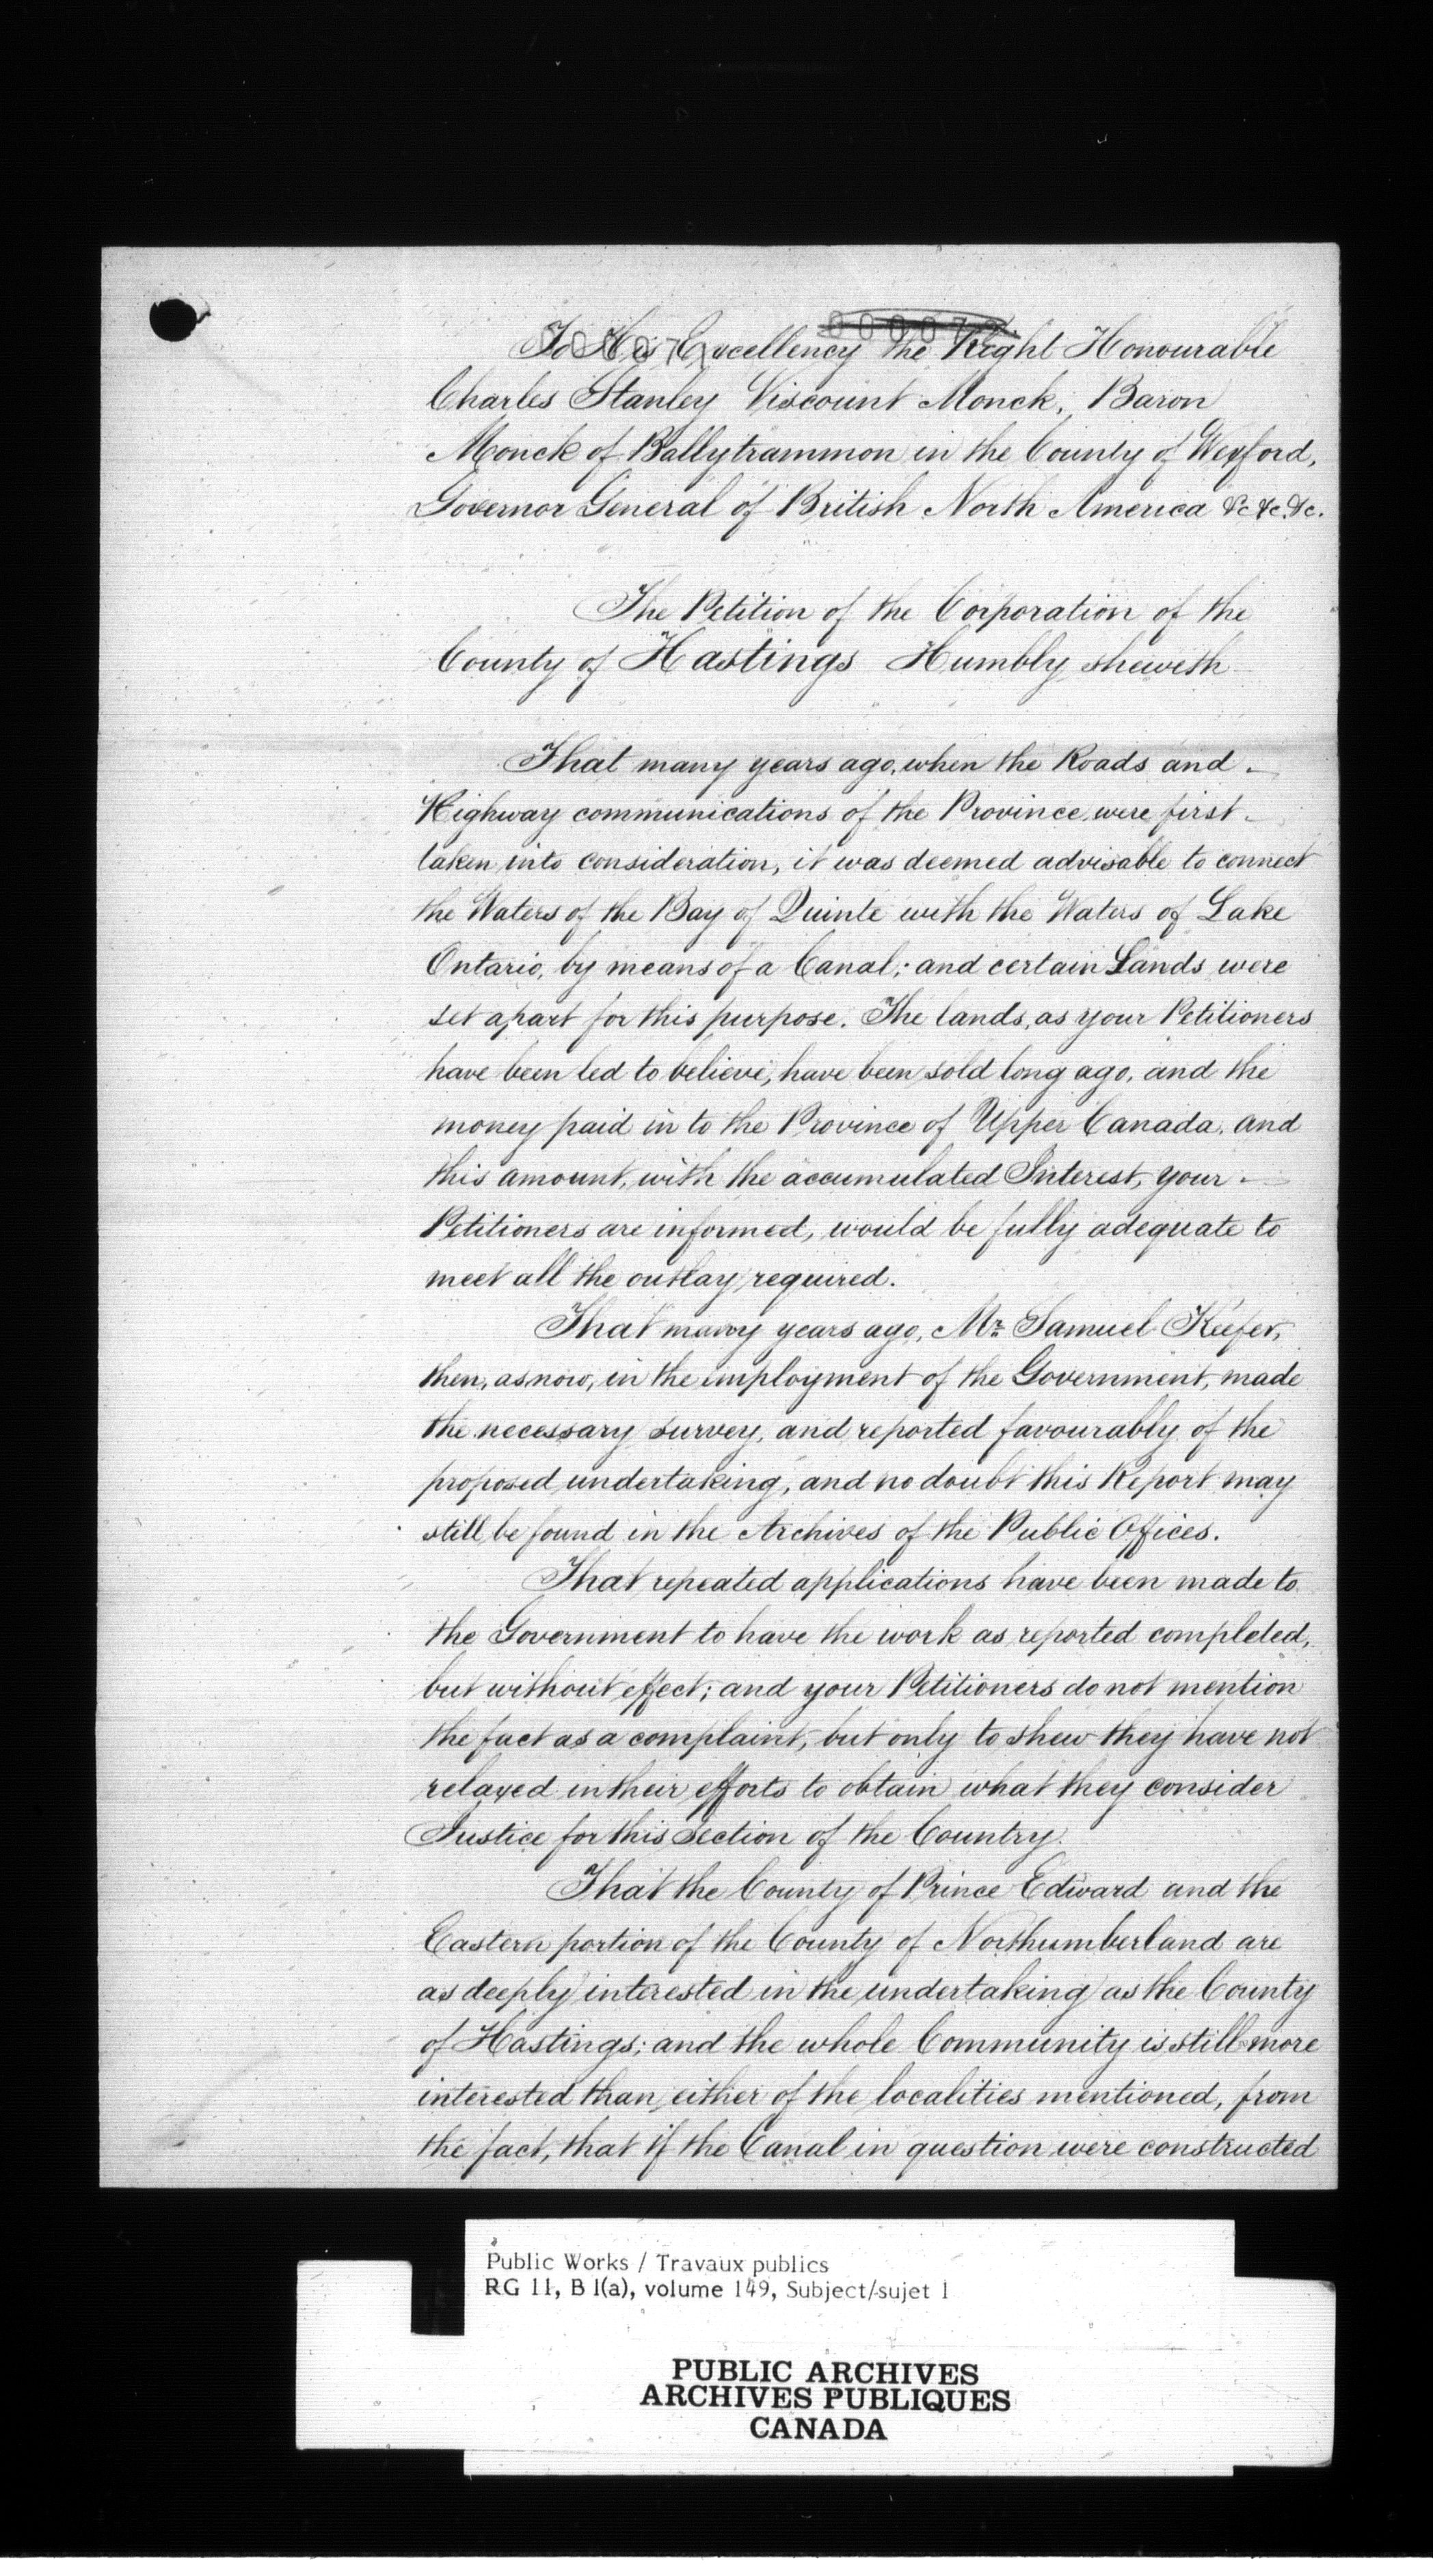 To His Excellency the Right Honourable
Charles Stanley Viscount Monck, Baron
Monck of Ballytrammon in the County of Wexford,
Governor General of British North America &c &c. &c.
The Petition of the Corporation of the
County of Hastings Humbly sheweth
That many years ago, when the Roads and
Highway communications of the Province, were first
taken into consideration, it was deemed advisable to connect
the Waters of the Bay of Quinte with the Waters of Lake
Ontario, by means of a Canal; and certain Lands were
set apart for this purpose. The lands, as your Petitioners
have been led to believe, have been sold long ago, and the
money paid in to the Province of Upper Canada, and
this amount, with the accumulated Interest, your
Petitioners are informed, would be fully adequate to
meet all the outlay required.
That many years ago, Mr. Samuel Keefer,
then, as now, in the employment of the Government, made
the necessary survey, and reported favourably of the
proposed undertaking, and no doubt this Report may
still be found in the Archives of the Public Offices.
That repeated applications have been made to
the Government to have the work as reported completed,
but without effect; and your Petitioners do not mention
the fact as a complaint, but only to shew they have not
relaxed in their efforts to obtain what they consider
Justice for this section of the Country.
That the County of Prince Edward and the
Eastern portion of the County of Northumberland are
as deeply interested in the undertaking as the County
of Hastings; and the whole Community is still more
interested than either of the localities mentioned, from
the fact, that if the Canal in question were constructed
Public Works / Travaux publics
RG 11, B 1(a), volume 149, Subject/sujet 1
PUBLIC ARCHIVES
ARCHIVES PUBLIQUES
CANADA